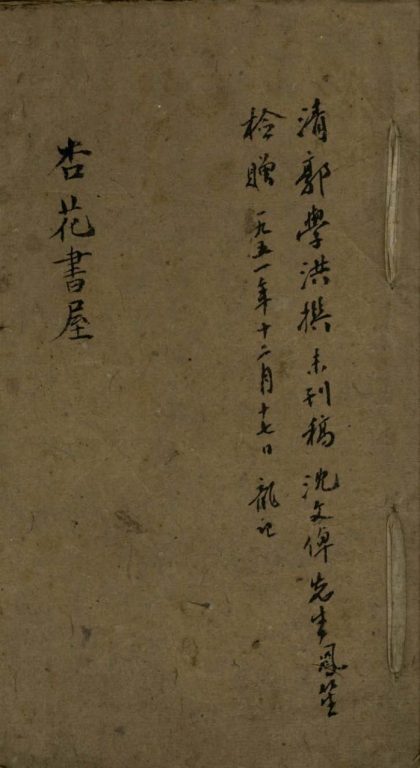 清郭學洪撰未刊稿 沈文倬先生鳳笙
检贈 一九五一年十二月十七日 龍记
杏花書屋